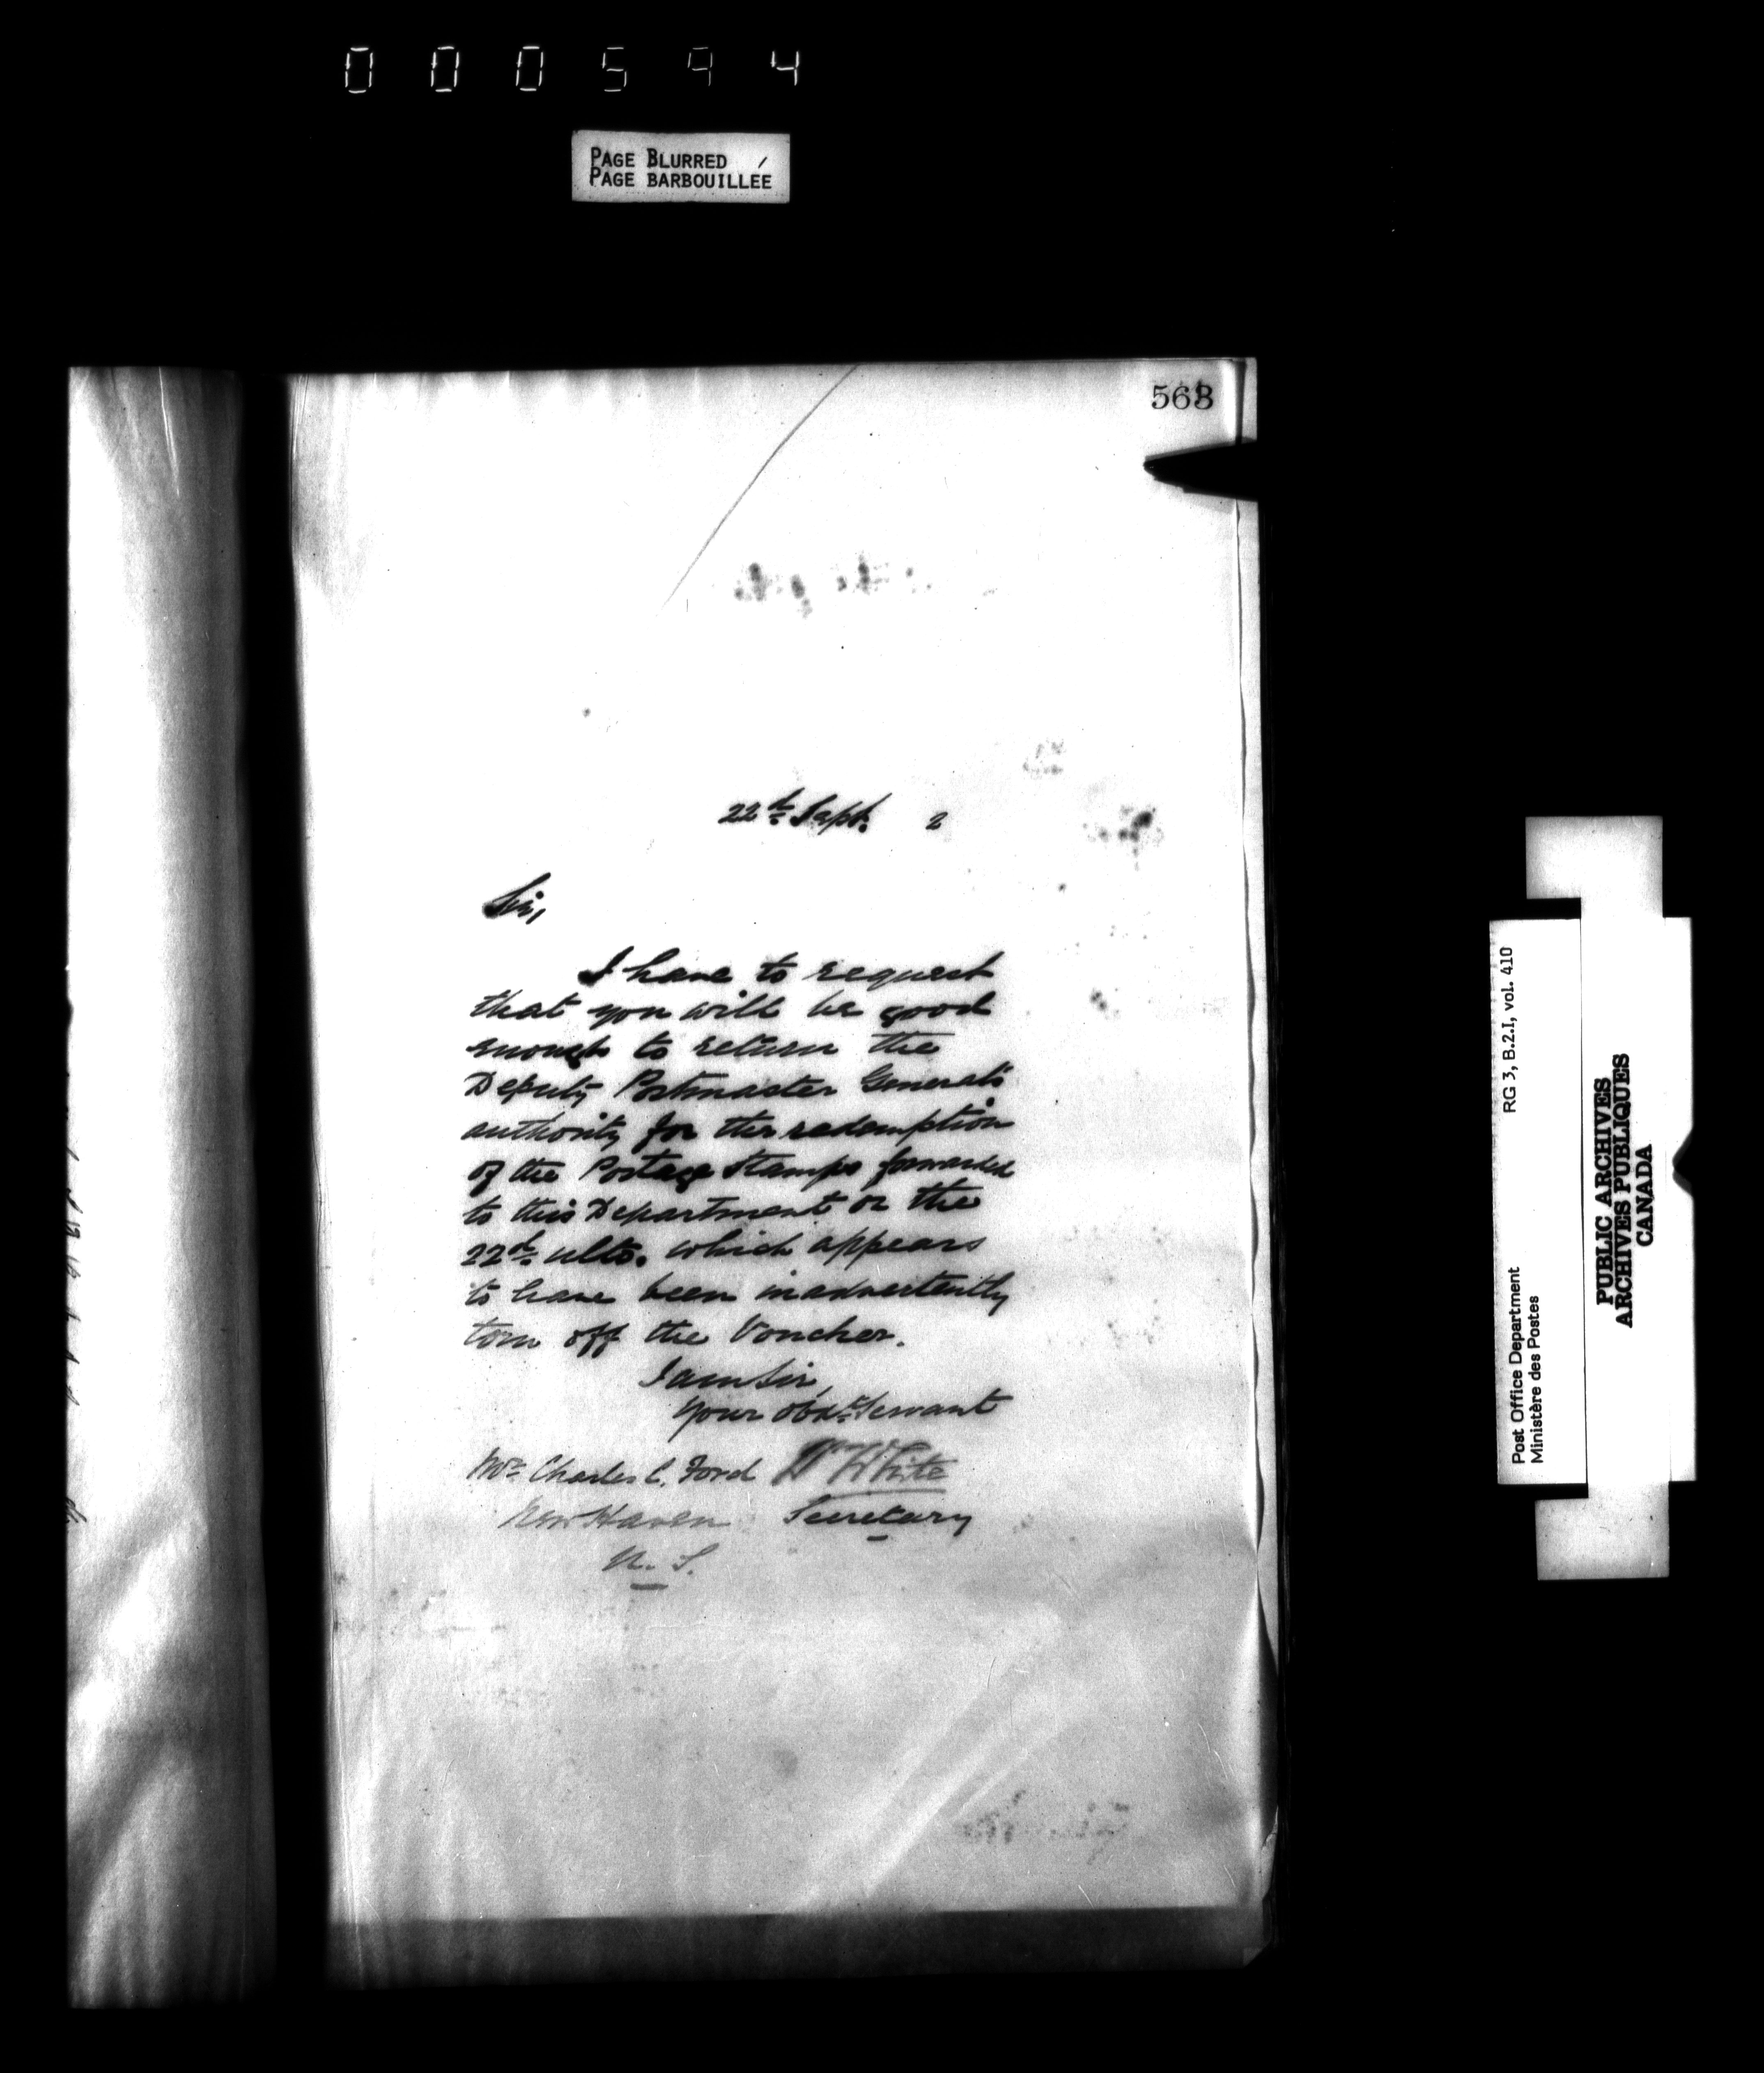 000594
PAGE BLURRED
PAGE BARBOUILLÉE
563
22d Sept. 2
Sir,
I have to request
that you will be good
enough to return the
Deputy Postmaster General's
authority for the redemption
of the Postage Stamps forwarded
to this Department on the
22d ulto. which appears
to have been inadvertently
torn off the Voucher.
I am Sir,
Your obdt. Servant
Mr Charles C. Ford W White
New Haven Secretary
N. S.
Post Office Department RG 3, B.2.I, vol. 410
Ministère des Postes
PUBLIC ARCHIVES
ARCHIVES PUBLIQUES
CANADA